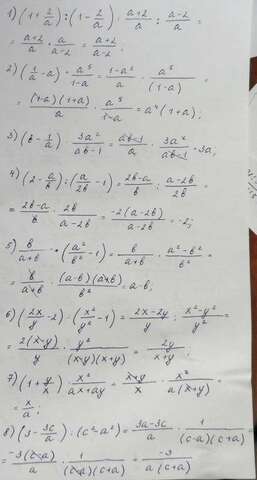 1) (1+2/a) : (1-2/a) · (a+2)/a : (a-2)/a =
= (a+2)/a · a/(a-2) = (a+2)/(a-2);
2) (1/a - a) · a⁵/(1-a) = (1-a²)/a · a⁵/(1-a) =
= (1-a)(1+a)/a · a⁵/(1-a) = a⁴(1+a);
3) (b - 1/a) · 3a²/(ab-1) = (ab-1)/a · 3a²/(ab-1) = 3a;
4) (2 - a/b) : (a/2b - 1) = (2b-a)/b : (a-2b)/2b =
= (2b-a)/b · 2b/(a-2b) = -2(a-2b)/(a-2b) = -2;
5) b/(a+b) · (a²/b² - 1) = b/(a+b) · (a²-b²)/b² =
= b/(a+b) · (a-b)(a+b)/b² = a-b;
6) (2x/y - 2) : (x²/y² - 1) = (2x-2y)/y : (x²-y²)/y² =
= 2(x-y)/y · y²/(x-y)(x+y) = 2y/(x+y);
7) (1+y/x) · x²/(ax+ay) = (x+y)/x · x²/a(x+y) =
= x/a;
8) (3 - 3c/a) : (c²-a²) = (3a-3c)/a · 1/(c-a)(c+a) =
= -3(c-a)/a · 1/(c-a)(c+a) = -3/a(c+a)